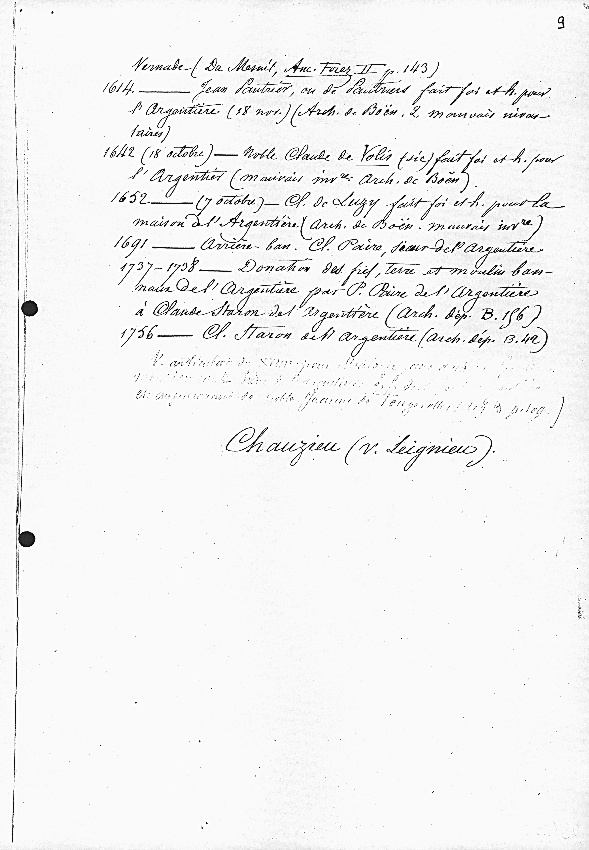 9
Vernade - ( Du Mesnil, Anc. Forez II p. 143)
1614. —— Jean Pautrier, ou de Pautriers fait foi et h. pour
l'Argentière (18 nov.) (Arch. de Boën. 2 mauvais inven-
taires)
1642 (18 octobre) — Noble Claude de Volis (sic) fait foi et h. pour
l'Argentier (mauvais invre. Arch. de Boën).
1652 —— (7 octobre) — Cl. de Luzy fait foi et h. pour la
maison de l'Argentière (Arch. de Boën. mauvais invre)
1691 —— Arrière-ban. Cl. Paire, sieur de l'Argentière
1737-1738 —— Donation des fief, terre et moulin ban-
naux de l'Argentière par P. Paire de l'Argentière
à Claude Staron de l'Argentière (Arch. dép. B. 156)
1756 —— Cl. Staron de l'Argentière (Arch. dép. B. 42)
et de noble Jeanne de
Chauzieu (v. Leignieu).